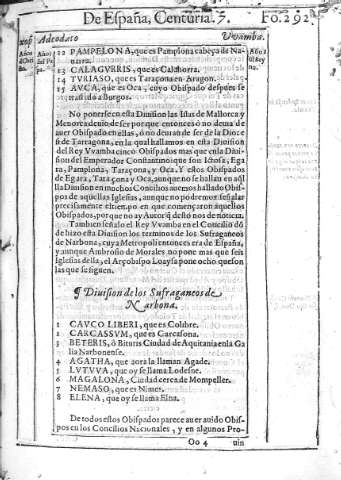 De España, Centuria. 7. Fo. 292
Adeodato Vvamba.
12 PAMPELONA, que es Pamplona cabeça de Na-
uarra.
13 CALAGVRRIS, que es Calahorra.
14 TVRIASO, que es Taraçona en Aragon.
15 AVCA, que es Oca, cuyo Obispado despues se
trasladò a Burgos.
No ponerse en esta Diuision las Islas de Mallorca y
Menorca deuio de ser porque entonces ò no deuia de
auer Obispado en ellas, ò no deuian de ser de la Dioce
si de Tarragona, en la qual hallamos en esta Diuision
del Rey Vvamba cinco Obispados mas que en la Diui-
sion del Emperador Constantino que son Idosa, Ega
ra, Pamplona, Taraçona, y Oca. Y estos Obispados
de Egara, Taraçona y Oca, aunque no se hallan en aq̃l
lla Diuision en muchos Concilios auemos hallado Obis-
pos de aquellas Iglesias, aunque no podremos señalar
precisamente el tiempo en que començaron aquellos
Obispados, porque no ay Autor q̃ desto nos dè noticia.
Tambien señalo el Rey Vvamba en el Concilio dõ
de hizo esta Diuision los terminos de los Sufraganeos
de Narbona, cuya Metropoli entonces era de España,
y aunque Ambrosio de Morales no pone mas que seis
Iglesias della, el Arçobispo Loaysa pone ocho que son
las que se siguen.
¶ Diuision de los Sufraganeos de
Narbona.
1 CAVCO LIBERI, que es Colibre.
2 CARCASSVM, que es Carcasona.
3 BETERIS, ò Bituris Ciudad de Aquitania en la Ga
lia Narbonense.
4 AGATHA, que aora la llaman Agade.
5 LVTVVA, que oy se llama Lodesue.
6 MAGALONA, Ciudad cerca de Mompeller.
7 NEMASO, que es Nimes.
8 ELENA, que oy se llama Elna.
De todos estos Obispados parece auer auido Obis-
pos en los Concilios Nacionales, y en algunos Pro-
Oo 4 uin